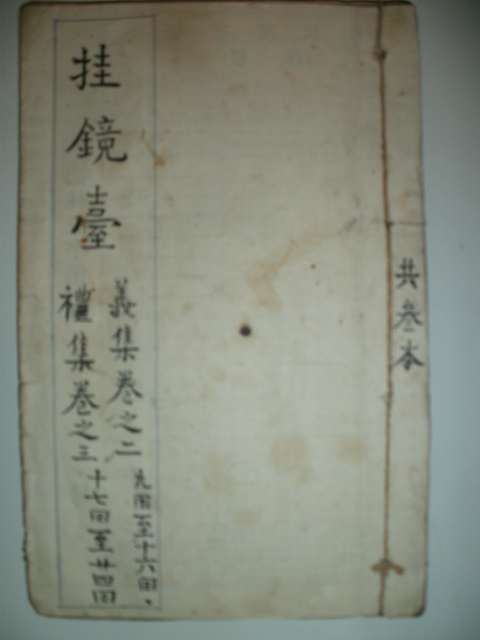 共叁本
挂鏡臺
義集卷之二 九囬至十六囬、
禮集卷之三 十七囬至廿四囬